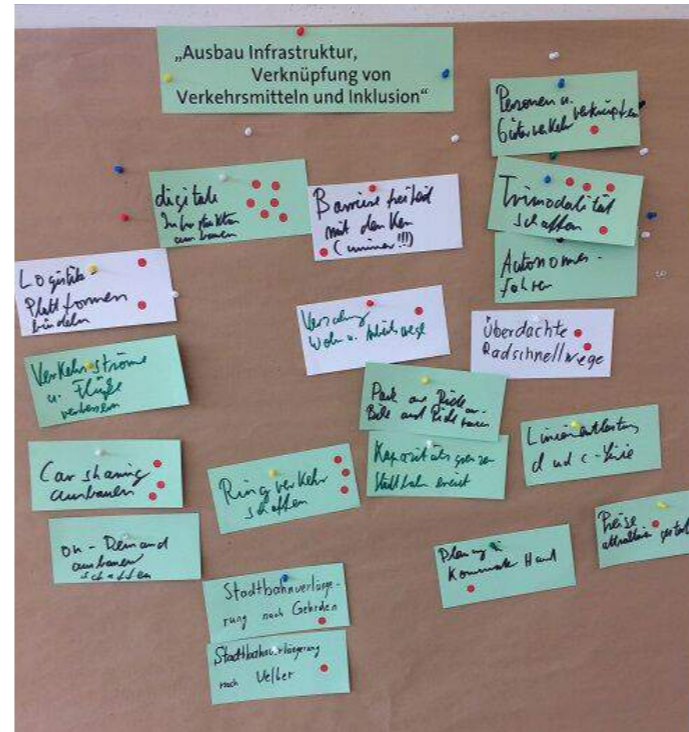 „Ausbau Infrastruktur,
Verknüpfung von
Verkehrsmitteln und Inklusion“
Personen u.
Güterverkehr verknüpfen
digitale
Infrastruktur
ausbauen
Barrierefreiheit
mit denken
(immer!!!)
Trimodalität
schaffen
Autonomes-
fahren
Logistik
Plattformen
bündeln
Wohn u. Arbeitswege
Überdachte
Radschnellwege
Verkehrsströme
u. Flüße
verbessern
Park and Ride
Bike and Ride bauen
Linienentlastung
d und c-Linie
Carsharing
ausbauen
Ringverkehr
schaffen
Kapazitätsgrenzen
Stadtbahn erreicht
on-Demand
ausbauen
schaffen
Planung
Kommunale Hand
Preise
attraktiver
Stadtbahnverlänge-
rung nach Gehrden
Stadtbahnverlängerung
nach Velber